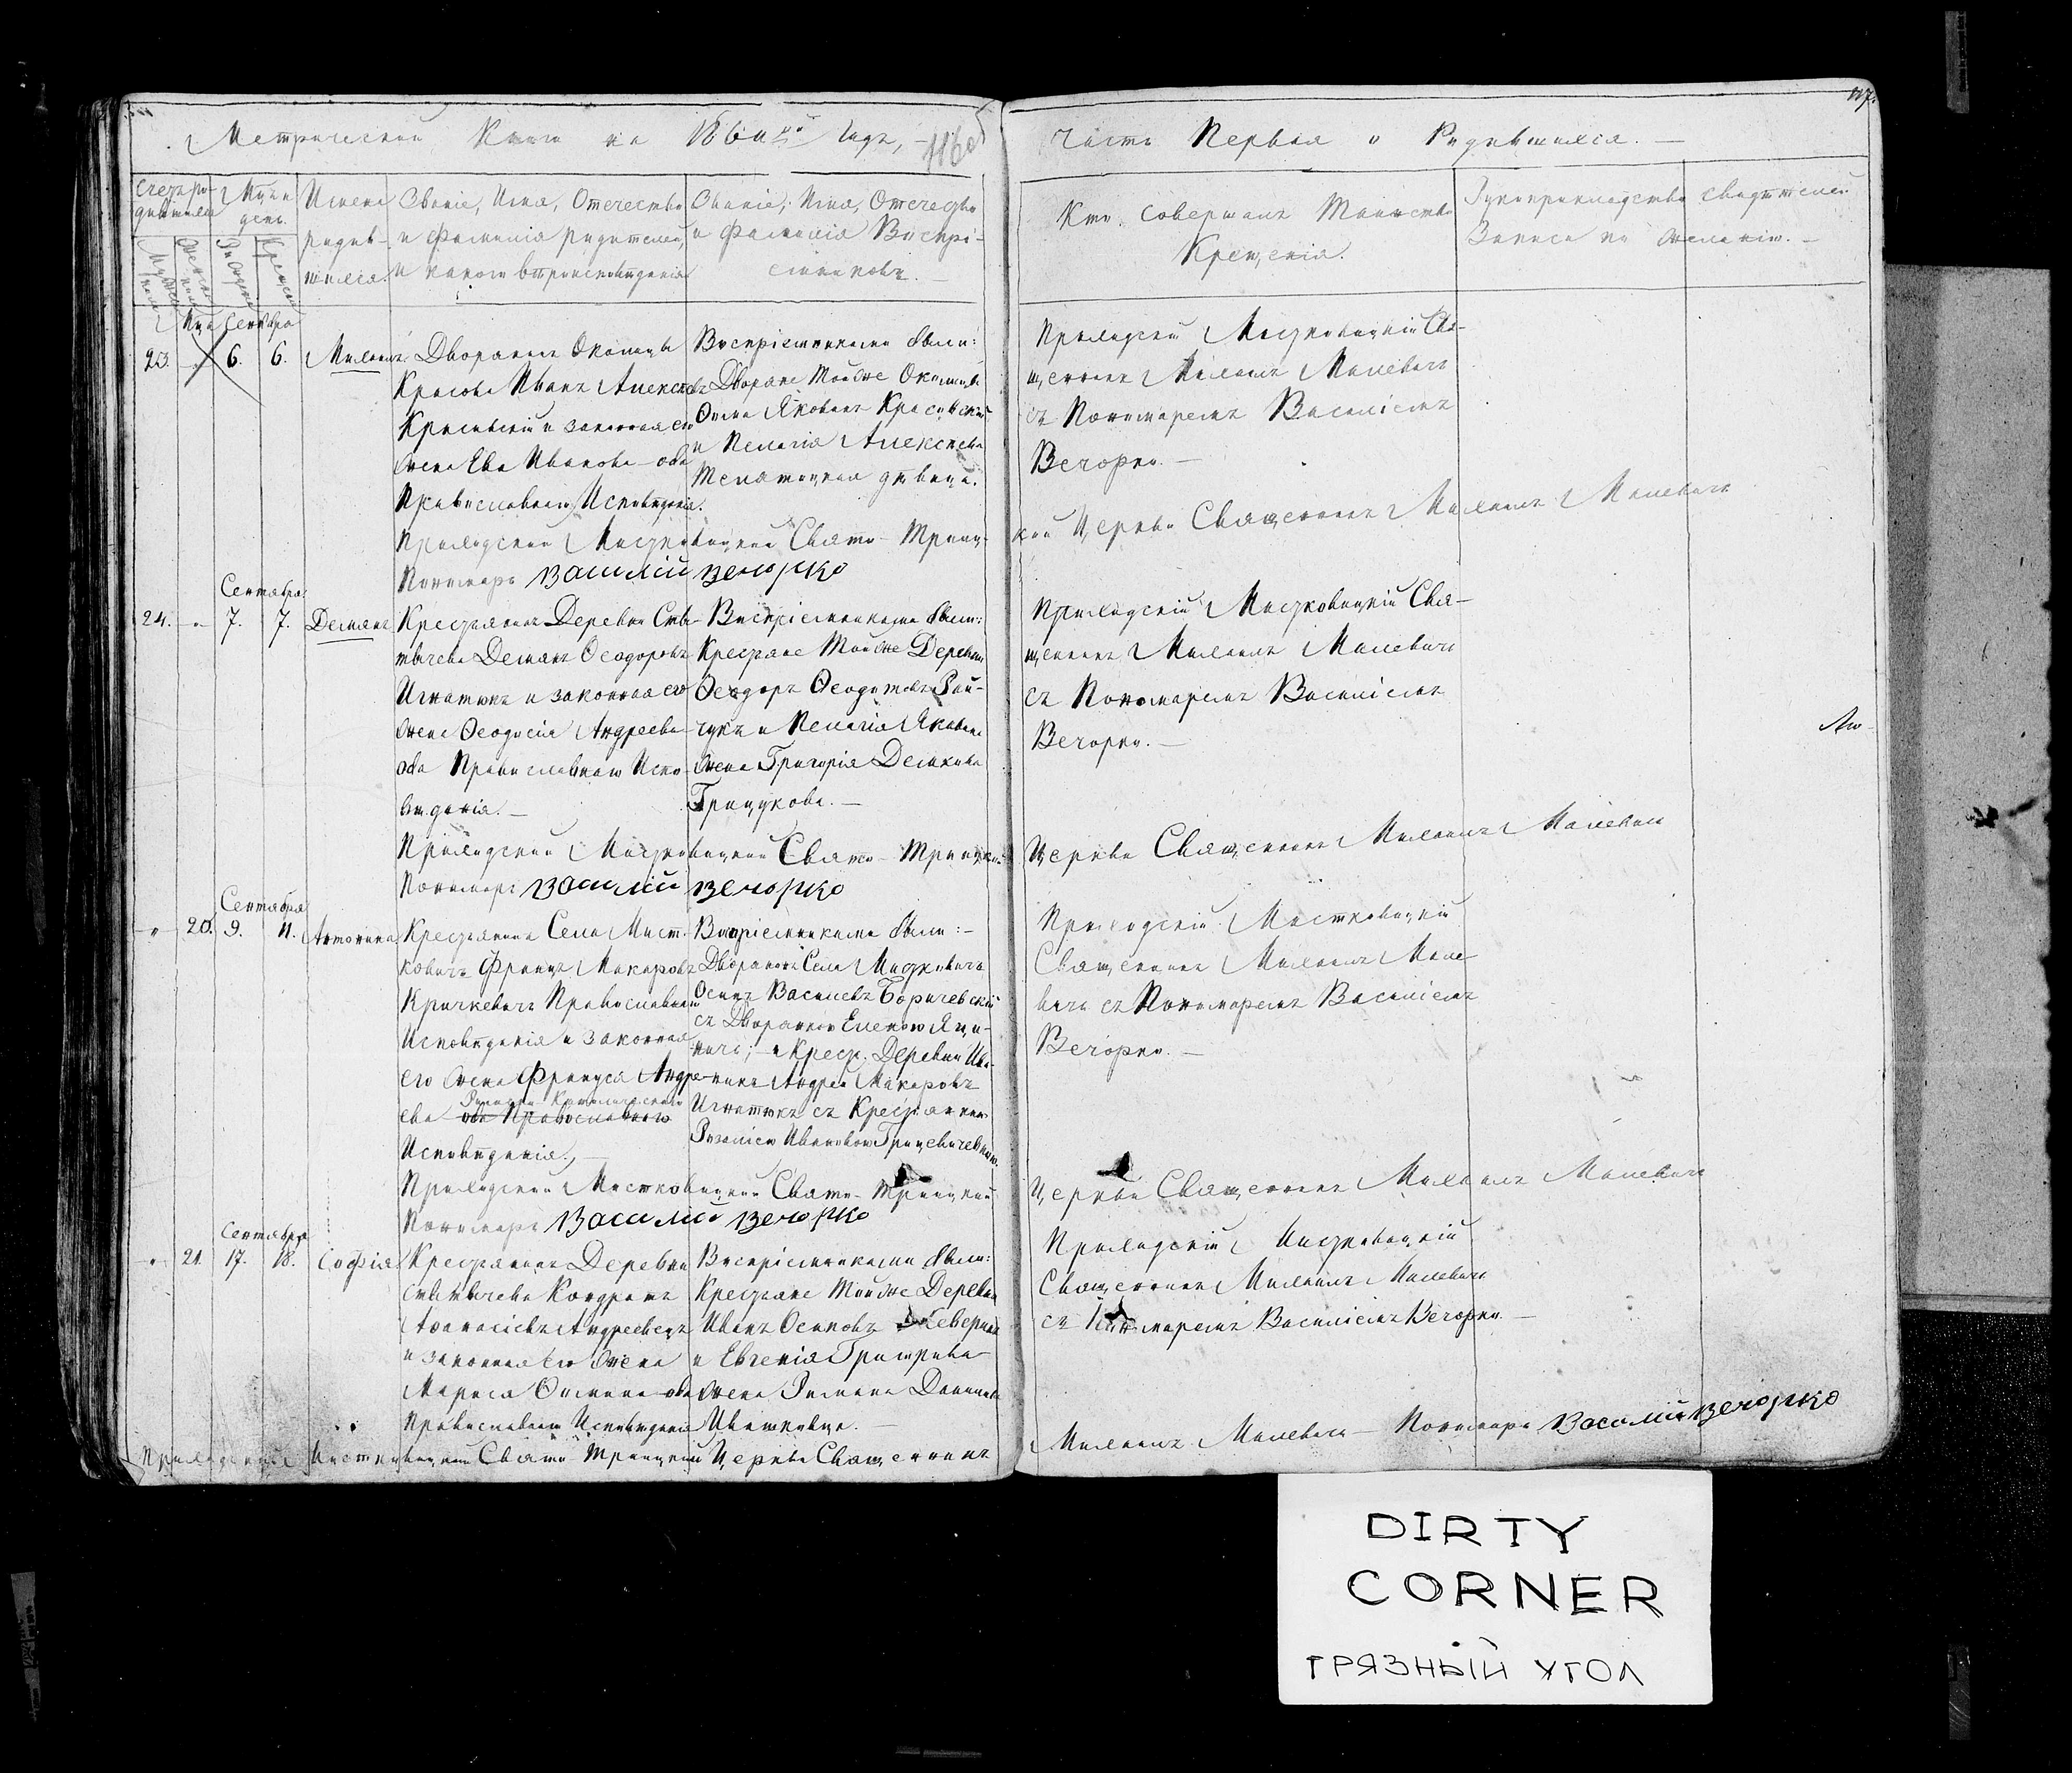 Метрической Книги на 1860й Годъ,
116об
Счетъ ро-
дившихся
Мѣсяцъ и
день.
Имена
родив-
шихся.
Званіе, Имя, Отечество
и Фамилія родителей,
и какого вѣроисповѣданія
Званіе, Имя, Отечество
и Фамилія Воспрі-
емниковъ.
Мѣсяца Сентября
23. 6. 6. Михаилъ
Дворянинъ Околицы
Красова Иванъ Алексѣевъ
Красовскій и законная его
жена Ева Иванова оба
Православнаго Исповѣданія.
Воспріемниками были:
Дворяне тойже Околицы
Осипъ Яковлевъ Красовскій
и Пелагія Алексѣева
дѣвица.
Приходской Мостковицкой Свято-Троиц-
Пономарь Василій Вечорко
Сентября
24. 7. 7. Демьянъ
Крестьянинъ Деревни Ство-
лычева Демьянъ Ѳеодоровъ
Игнатюкъ и законная его
жена Ѳеодосія Андреева
оба Православнаго Испо-
вѣданія.
Воспріемниками были:
Крестьяне тойже Деревни
Ѳеодоръ
и Пелагія Яковлева
жена Григорія
Грицукова.
Приходской Мостковицкой Свято-Троицкой
Пономарь Василій Вечорко
Сентября
20. 9. 11. Антонина
Крестьянинъ Села Мост-
ковичъ Францъ Макаровъ
Кричкевичъ Православнаго
Исповѣданія и законная
его жена Француся Андре-
ева Римско Католическаго
оба Православнаго
Исповѣданія,
Воспріемниками были:
Дворянинъ Села Мостковичъ
Осипъ Васильевъ Боричевскій
съ Дворянкою Еленою
и Крест. Деревни
Андрей Макаровъ
Игнатюкъ съ Крестьянкою
Розаліею Ивановою
Приходской Мостковицкой Свято-Троицкой
Пономарь Василій Вечорко
Сентября
21 17. 18. Софія
Крестьянинъ Деревни
Стволычева Кондратъ
Аѳанасіевъ Андреевецъ
и законная его жена
Марися Осипова оба
Православнаго Исповѣданія
Воспріемниками были:
Крестьяне тойже Деревни
Иванъ Осиповъ
и Евгенія
жена Романа
Приходской Мостковицкой Свято Троицкой Церкви Священникъ
117.
Часть Первая о Родившихся.
Кто совершалъ Таинство
Крещенія.
Рукоприкладство свидѣтелей
Записи по желанію.
Приходскій Мостковицкій Свя-
щенникъ Михаилъ Малевичъ
съ Пономаремъ Василіемъ
Вечорко.
кой Церкви Священникъ Михаилъ Малевичъ
Приходскій Мостковицкій Свя-
щенникъ Михаилъ Малевичъ
съ Пономаремъ Василіемъ
Вечорко.
Церкви Священникъ Михаилъ Малевичъ
Приходскій Мостковицкій
Священникъ Михаилъ Мале-
вичъ съ Пономаремъ Василіемъ
Вечорко.
Церкви Священникъ Михаилъ Малевичъ
Приходскій Мостковицкій
Священникъ Михаилъ Малевичъ
съ Пономаремъ Василіемъ Вечорко.
Михаилъ Малевичъ Пономарь Василій Вечорко
DIRTY
CORNER
ГРЯЗНЫЙ УГОЛ